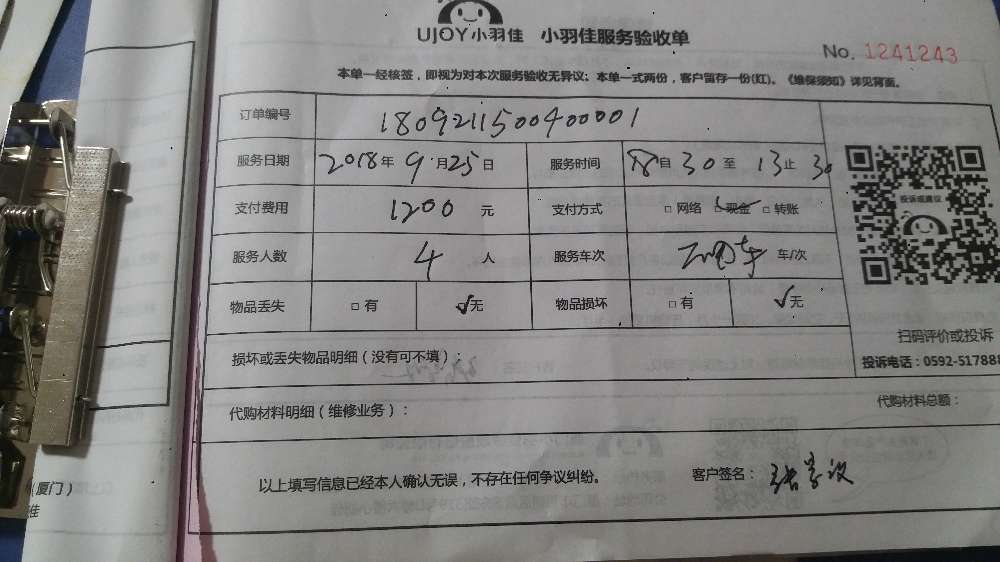 UJOY小羽佳 小羽佳服务验收单
No. 1241243
本单一经核签，即视为对本次服务验收无异议；本单一式两份，客户留存一份(红)。《维保须知》详见背面。
订单编号 180921150040000 1
服务日期 2018年9月25日 服务时间 自 30 至 13 止 30
支付费用 1200 元 支付方式 □ 网络 □ 现金 □ 转账
服务人数 4 人 服务车次 车/次
投诉或建议
物品丢失 □ 有 ☑ 无 物品损坏 □ 有 ☑ 无
扫码评价或投诉
损坏或丢失物品明细（没有可不填）：
投诉电话：0592-517888
代购材料明细（维修业务）： 代购材料总额：
以上填写信息已经本人确认无误，不存在任何争议纠纷。 客户签名：
（厦门）